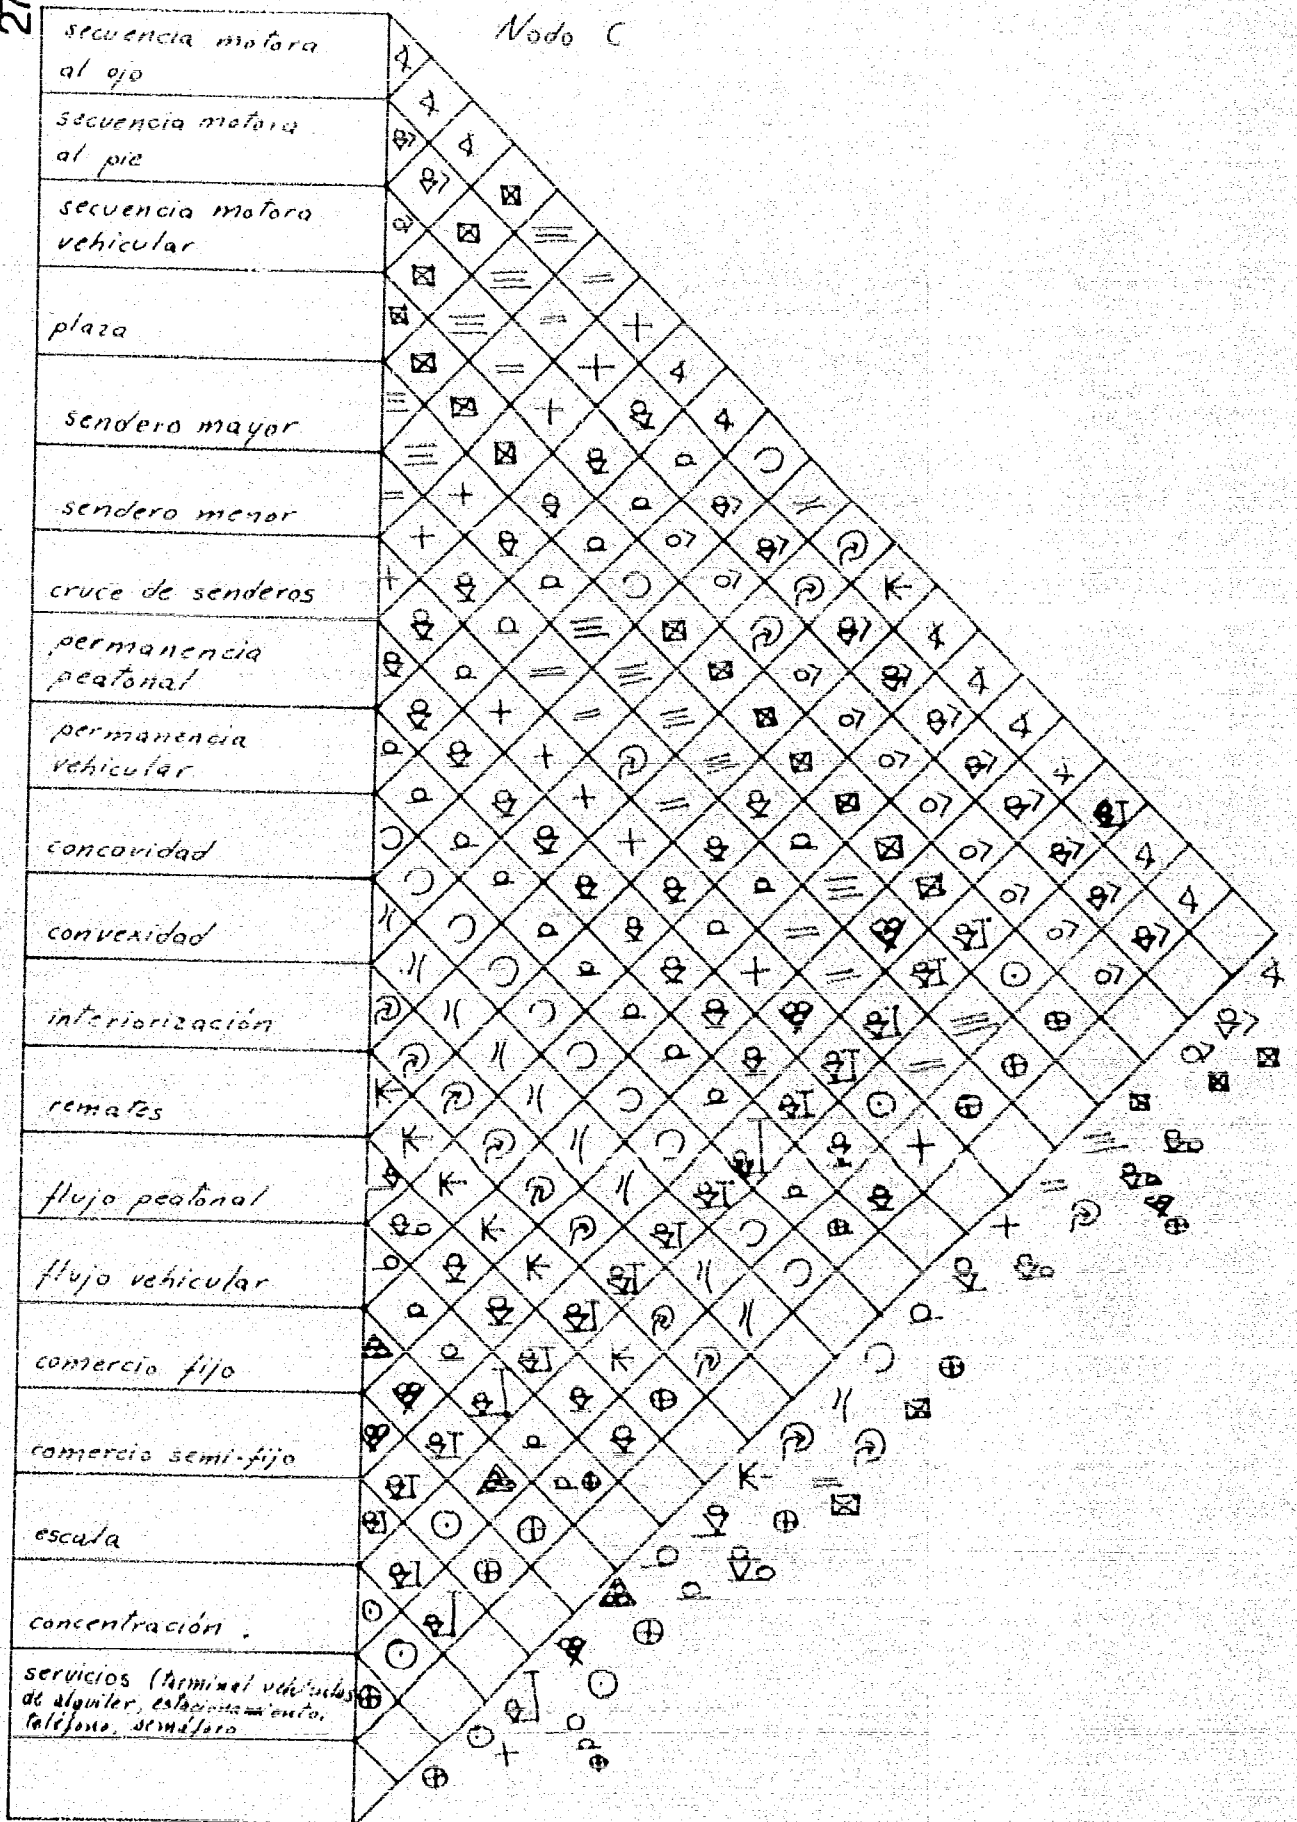 27
Nodo C
secuencia motora
al ojo
secuencia motora
al pie
secuencia motora
vehicular
plaza
sendero mayor
sendero menor
cruce de senderos
permanencia
peatonal
permanencia
vehicular
concavidad
convexidad
interiorización
remates
flujo peatonal
flujo vehicular
comercio fijo
comercio semi-fijo
escala
concentración.
servicios (terminal vehículos
de alquiler, estacionamiento,
teléfono, semáforo